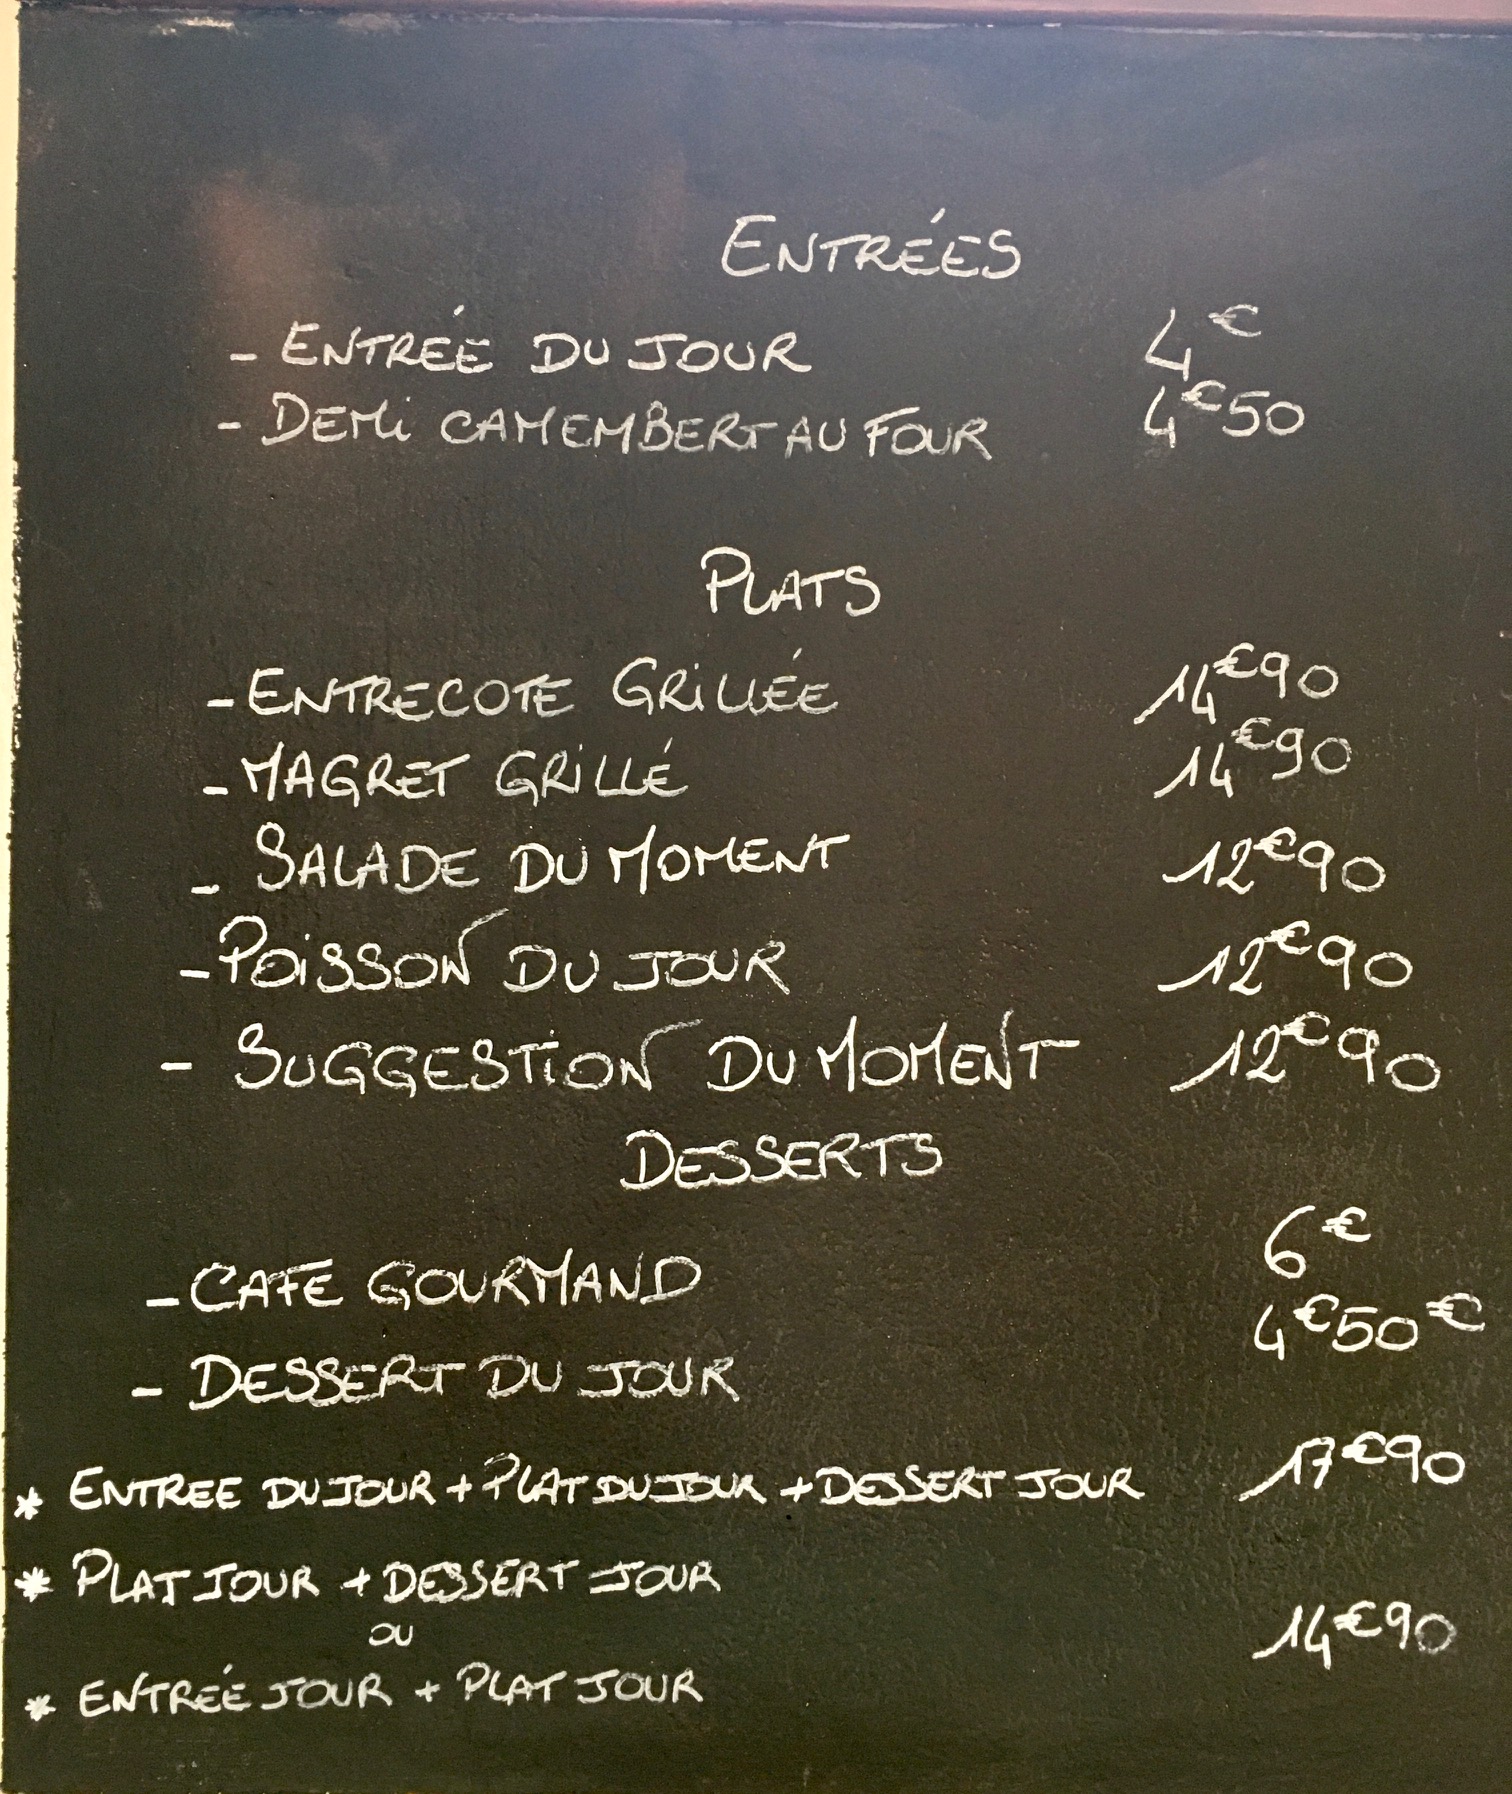 ENTRÉES
- ENTRÉE DU JOUR 4€
- DEMi CAMEMBERT AU FOUR 4€50
PLATS
- ENTRECOTE GRiLLÉE 14€90
- MAGRET GRiLLÉ 14€90
- SALADE DU MOMENT 12€90
- POiSSON DU JOUR 12€90
- SUGGESTiON DU MOMENT 12€90
DESSERTS
- CAFE GOURMAND 6€
- DESSERT DU JOUR 4€50€
* ENTREE DU JOUR + PLAT DU JOUR + DESSERT JOUR 17€90
* PLAT JOUR + DESSERT JOUR
OU
14€90
* ENTRÉE JOUR + PLAT JOUR